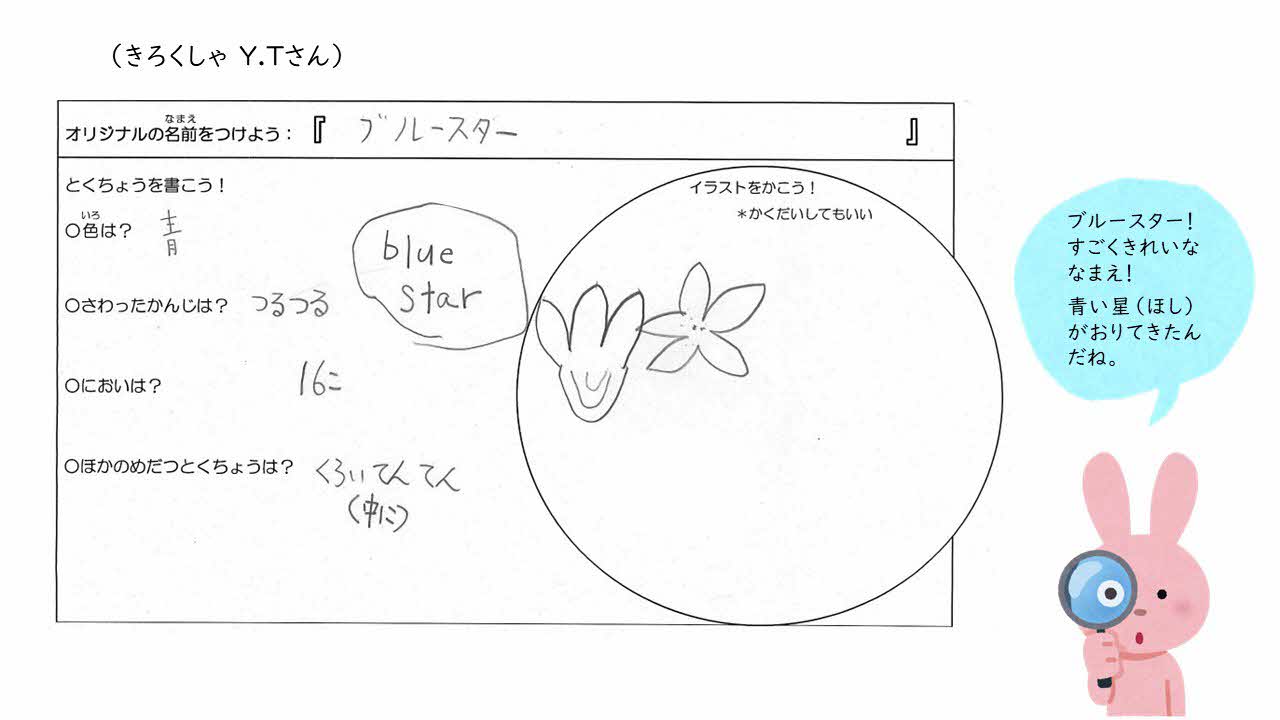 （きろくしゃ Y.Tさん）
なまえ
オリジナルの名前をつけよう：『 ブルースター 』
とくちょうを書こう！
いろ
○色は？ 青
○さわったかんじは？ つるつる
○においは？
○ほかのめだつとくちょうは？ くろいてんてん
（中に）
blue
star
イラストをかこう！
＊かくだいしてもいい
ブルースター！
すごくきれいな
なまえ！
青い星（ほし）
がおりてきたん
だね。